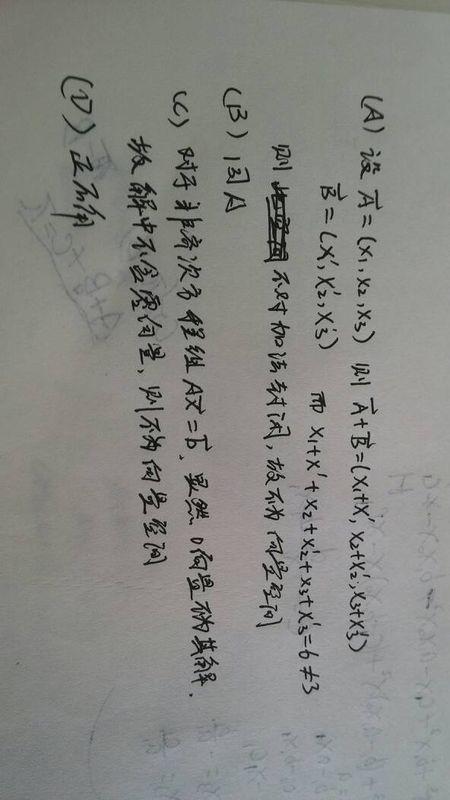 (A) 设 A⃗=(x₁,x₂,x₃) 则 A⃗+B⃗=(x₁+x′, x₂+x₂′, x₃+x₃′)
B⃗=(x′,x₂′,x₃′) 而 x₁+x′+x₂+x₂′+x₃+x₃′=6≠3
则 不对加法封闭,故不为向量空间
(B) 同A
(C) 对于非齐次方程组 Ax⃗=b⃗, 显然0向量不为其解.
故解中不含零向量,则不为向量空间
(D) 正确